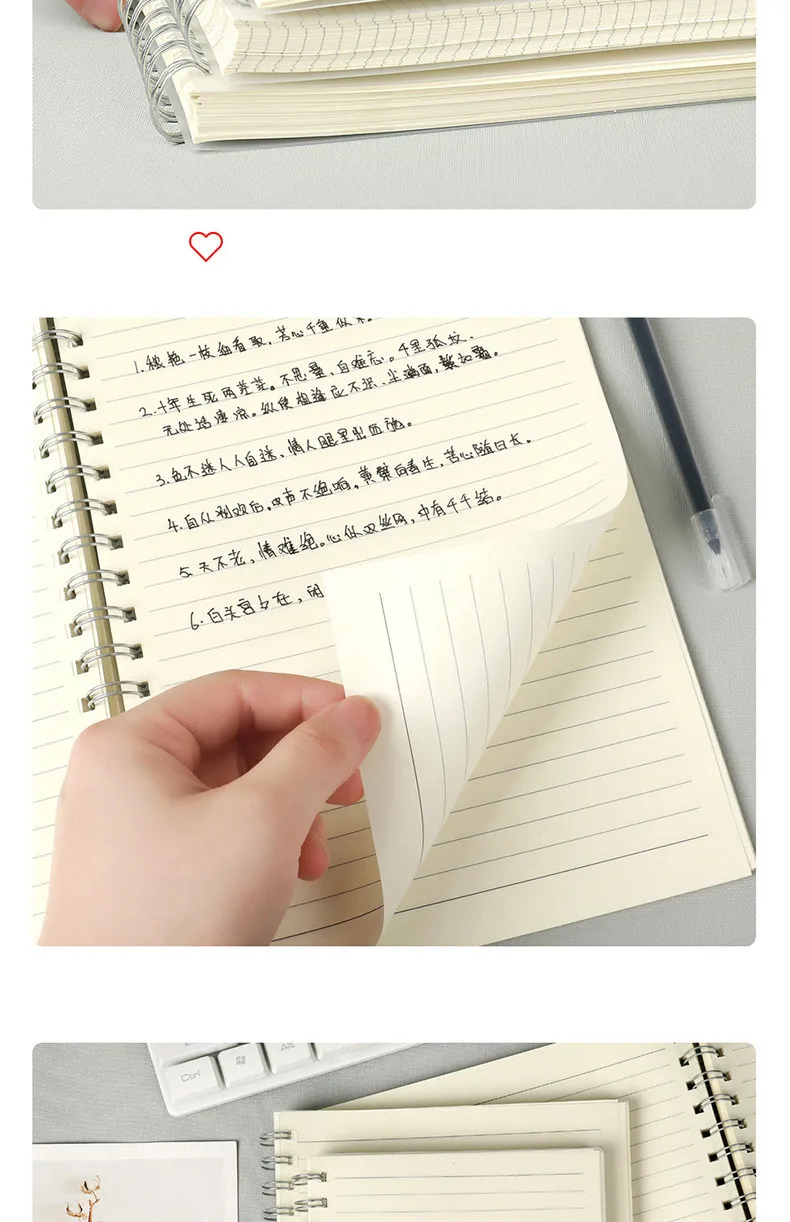 1.秾艳一枝细看取,芳心千重似束。
2.十年生死两茫茫。不思量,自难忘。千里孤坟,
无处话凄凉。纵使相逢应不识,尘满面,鬓如霜。
3.色不迷人人自迷,情人眼里出西施。
4.自从别欢后,叹声不绝响,黄檗向春生,苦心随日长。
5.天不老,情难绝。心似双丝网,中有千千结。
6.白头宫女在,闲
Ctrl
Alt